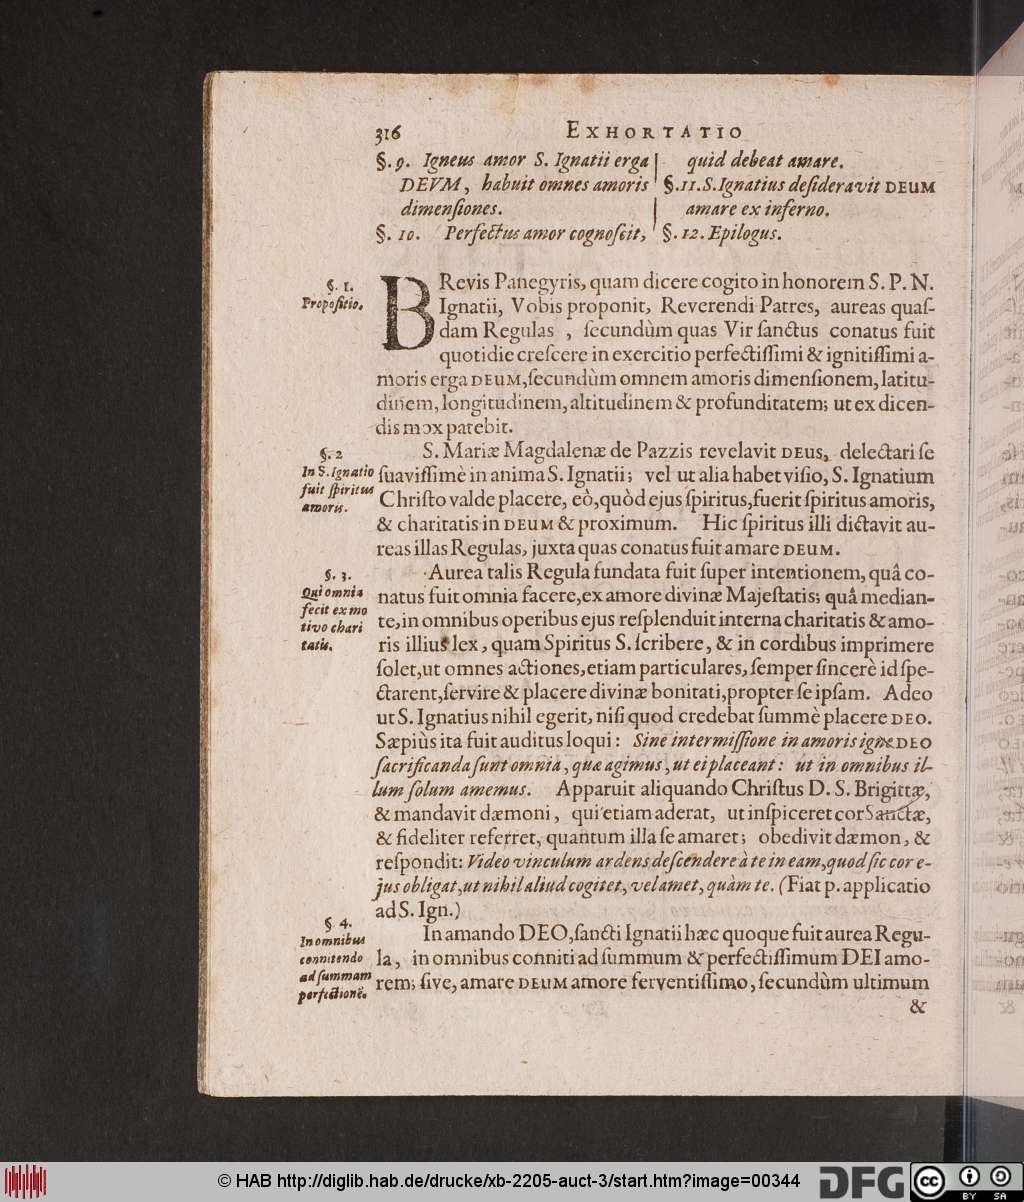 316 EXHORTATIO
§. 9. Igneus amor S. Ignatii erga
DEVM, habuit omnes amoris
dimenſiones.
§. 10. Perfectus amor cognoſcit,
quid debeat amare.
§. 11. S. Ignatius deſideravit DEUM
amare ex inferno.
§. 12. Epilogus.
§. 1.
Propoſitio.
BRevis Panegyris, quam dicere cogito in honorem S. P. N.
Ignatii, Vobis proponit, Reverendi Patres, aureas quaſ-
dam Regulas , ſecundùm quas Vir ſanctus conatus fuit
quotidie creſcere in exercitio perfectiſſimi & ignitiſſimi a-
moris erga DEUM, ſecundùm omnem amoris dimenſionem, latitu-
dinem, longitudinem, altitudinem & profunditatem; ut ex dicen-
dis mox patebit.
§. 2
In S. Ignatio
fuit ſpiritus
amoris.
S. Mariæ Magdalenæ de Pazzis revelavit DEUS, delectari ſe
ſuaviſſimè in anima S. Ignatii; vel ut alia habet viſio, S. Ignatium
Chriſto valde placere, eò, quòd ejus ſpiritus, fuerit ſpiritus amoris,
& charitatis in DEUM & proximum. Hic ſpiritus illi dictavit au-
reas illas Regulas, juxta quas conatus fuit amare DEUM.
§. 3.
Qui omnia
fecit ex mo
tivo chari
tatis.
Aurea talis Regula fundata fuit ſuper intentionem, quâ co-
natus fuit omnia facere, ex amore divinæ Majeſtatis; quâ median-
te, in omnibus operibus ejus reſplenduit interna charitatis & amo-
ris illius lex, quam Spiritus S. ſcribere, & in cordibus imprimere
ſolet, ut omnes actiones, etiam particulares, ſemper ſincerè id ſpe-
ctarent, ſervire & placere divinæ bonitati, propter ſe ipſam. Adeo
ut S. Ignatius nihil egerit, niſi quod credebat ſummè placere DEO.
Sæpiùs ita fuit auditus loqui: Sine intermiſſione in amoris igne DEO
ſacrificanda ſunt omnia, quæ agimus, ut ei placeant: ut in omnibus il-
lum ſolum amemus. Apparuit aliquando Chriſtus D. S. Brigittæ,
& mandavit dæmoni, qui etiam aderat, ut inſpiceret cor Sanctæ,
& fideliter referret, quantum illa ſe amaret; obedivit dæmon, &
reſpondit: Video vinculum ardens deſcendere à te in eam, quod ſic cor e-
jus obligat, ut nihil aliud cogitet, vel amet, quàm te. (Fiat p. applicatio
ad S. Ign.)
§. 4.
In omnibus
connitendo
ad ſummam
perfectionē.
In amando DEO, ſancti Ignatii hæc quoque fuit aurea Regu-
la, in omnibus conniti ad ſummum & perfectiſſimum DEI amo-
rem; ſive, amare DEUM amore ferventiſſimo, ſecundùm ultimum
&
© HAB http://diglib.hab.de/drucke/xb-2205-auct-3/start.htm?image=00344
DFG
cc BY SA